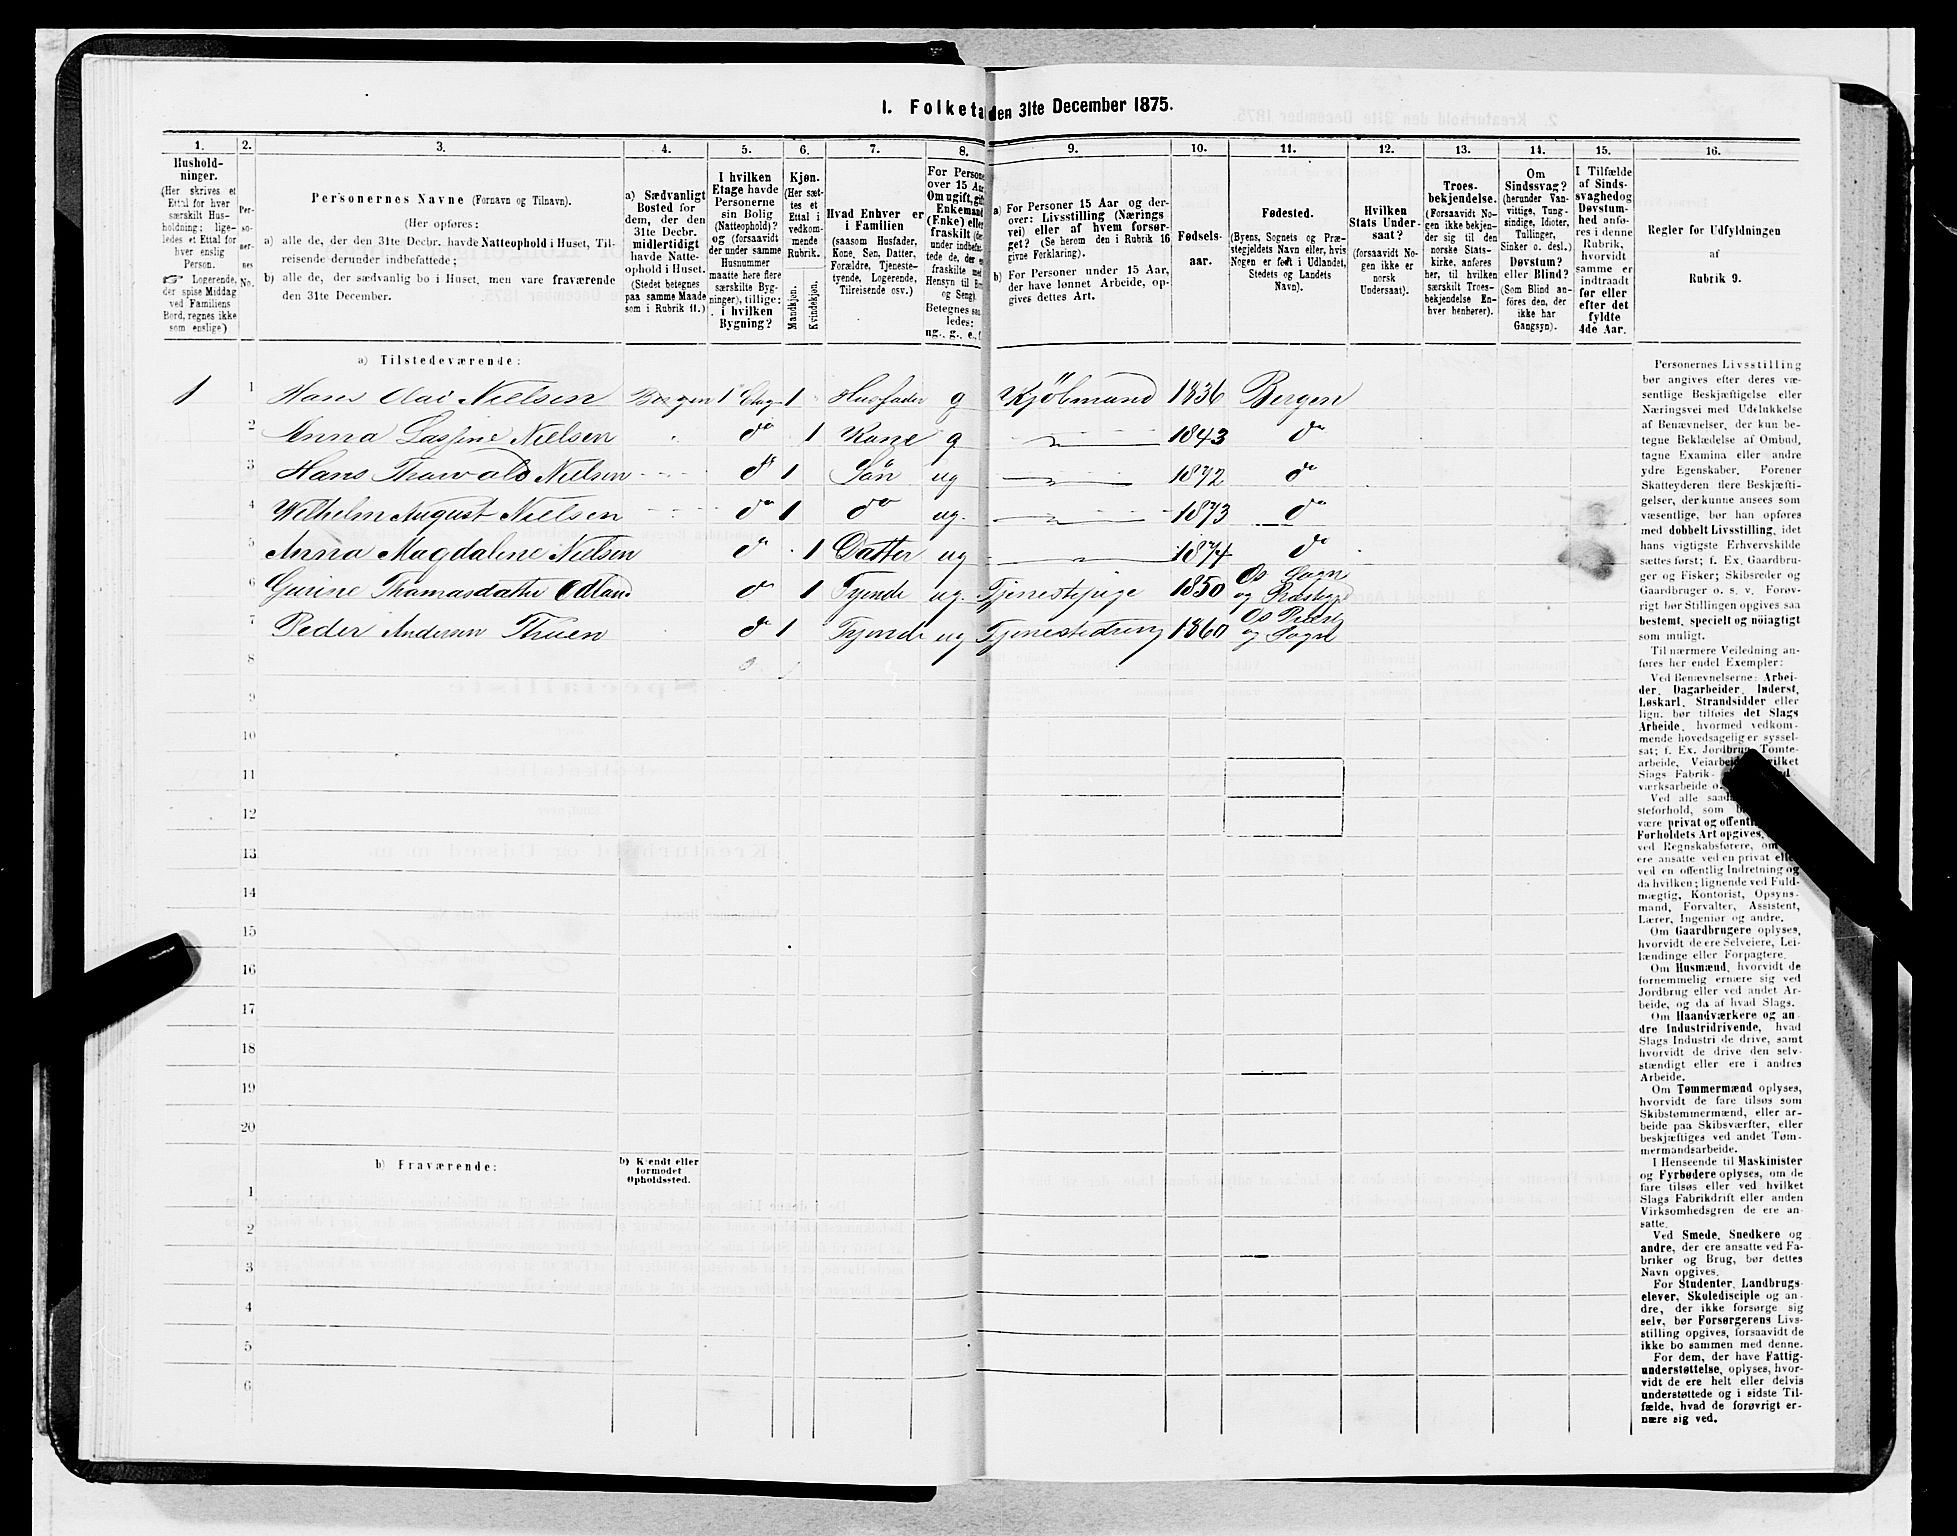 I. Folketa den 31te December 1875.
1. 2. 3. 4. 5. 6. 7. 8. 9. 10. 11. 12. 13. 14. 15. 16.
Hushold-
ninger.
(Her skrives et
Ettal for hver
særskilt Hus-
holdning; lige-
ledes et Ettal for
hver enslig
Person.
Logerende,
der spise Middag
ved Familiens
Bord, regnes ikke
som enslige)
Per-
so-
ner-
nes
No.
Personernes Navne (Fornavn og Tilnavn).
(Her opføres:
a) alle de, der den 31te Decbr. havde Natteophold i Huset, Til-
reisende derunder indbefattede;
b) alle de, der sædvanlig bo i Huset, men vare fraværende
den 31te December.
a) Sædvanligt
Bosted for
dem, der den
31te Decbr.
midlertidigt
havde Natte-
ophold i Huset.
(Stedet betegnes
paa samme Maade
som i Rubrik 11.)
I hvilken
Etage havde
Personerne
sin Bolig
(Natteophold)?
og (forsaavidt
der under samme
Husnummer
maatte høre flere
særskilte Byg-
ninger), tillige:
i hvilken
Bygning?
Kjøn.
(Her sæt-
tes et
Ettal i
vedkom-
mende
Rubrik.
Mandkjøn.
Kvindekjøn.
Hvad Enhver er
i Familien
(saasom Husfader,
Kone, Søn, Datter,
Forældre, Tjeneste-
tyende, Logerende,
Tilreisende osv.)
For Persone
over 15 Aar
Om ugift, gift
Enkemand
(Enke) eller
fraskilt (de
under indbefat-
tede de, der e
fraskilte med
Hensyn til Bo
og Seng).
Betegnes saa
ledes:
ug., g., e., f.
a) For Personer 15 Aar og der-
over: Livsstilling (Nærings
vei) eller af hvem forsør-
get? (Se herom den i Rubrik 16
givne Forklaring).
b) For Personer under 15 Aar,
der have lønnet Arbeide, op-
gives dettes Art.
Fødsels-
aar.
Fødested.
(Byens, Sognets og Præ-
stegjeldets Navn eller, hvis
Nogen er født i Udlandet,
Stedets og Landets
Navn).
Hvilken
Stats Under-
saat?
(forsaavidt No-
gen ikke er
norsk
Undersaat).
Troes-
bekjendelse.
(Forsaavidt No-
gen ikke bekjen-
der sig til den
norske Stats-
kirke, anføres
her, til hvilken
særskilt Troes-
bekjendelse En-
hver henhører).
Om
Sindssvag?
(herunder Van-
vittige, Tung-
sindige, Idioter,
Tullinger,
Sinker o. desl.)
Døvstum?
eller Blind?
(Som Blind an-
føres den, der
ikke har
Gangsyn).
I Tilfælde
af Sinds-
svaghedog
Døvstum-
hed anfø-
res i denne
Rubrik,
hvorvidt
samme er
indtraadt
før eller
efter det
fyldte
4de Aar.
Regler for Udfyldningen
af
Rubrik 9.
a) Tilstedeværende:
1 1 Hans Olai Nielsen Bergen 1 Etag 1 Husfader g Kjöbmand 1836 Bergen
2 Anna Nielsen do 1 Kone g 1843 do
3 Hans Thorvald Nielsen do 1 Sön ug 1872 do
4 Wilhelm August Nielsen do 1 do ug. 1873 do
5 Anna Magdalene Nielsen do 1 Datter ug 1874 do
6 Gurine Thomasdatter Ødland do 1 Tyende ug. Tjenestepige 1850 Os Sogn
og Præstegjd
7 Peder Andersen Thuen do 1 Tyende ug Tjenestedreng 1860 Os Præst
og Sogn
8
9
10
11
12
13
14
15
16
17
18
19
20
b) Fraværende:
b) Kjendt eller
formodet
Opholdssted.
1
2
3
4
5
6
Personernes Livsstilling
bør angives efter deres væ-
sentlige Beskjæftigelse eller
Næringsvei med Udelukkelse
af Benævnelser, der kun be-
tegne Beklædelse af Ombud,
tagne Examina eller andre
ydre Egenskaber. Forener
Skatteyderen flere Beskjæfti-
gelser, der kunne ansees som
væsentlige, bør han opføres
med dobbelt Livsstilling, idet
hans vigtigste Erhvervskilde
sættes først; f. Ex. Gaardbru-
ger og Fisker; Skibsreder og
Gaardbruger o. s. v. Forøv-
rigt bør Stillingen opgives saa
bestemt, specielt og nöiagtigt
som muligt.
Til nærmere Veiledning an-
føres her endel Exempler:
Ved Benævnelserne: Arbei-
der, Dagarbeider, Inderst,
Løskarl, Strandsidder eller
lign. bør tilføies det Slags
Arbeide, hvormed vedkom-
mende hovedsagelig er syssel-
sat; f. Ex. Jordbrug, Tomte-
arbeide, Veiarbeide, hvilket
Slags Fabrik-
værksarbeide o.
Ved alle saad
steforhold, som
være privat og offent
Forholdets Art opgives,
ved Regnskabsførere, om
ere ansatte ved en privat eller
ved en offentlig Indretning og
da hvilken; lignende ved Fuld-
mægtig, Kontorist, Opsyns-
mand, Forvalter, Assistent,
Lærer, Ingeniør og andre.
Om Gaardbrugere oplyses,
hvorvidt de ere Selveiere, Lei-
lændinge eller Forpagtere.
Om Husmænd, hvorvidt de
fornemmelig ernære sig ved
Jordbrug eller ved andet Ar-
beide, og da af hvad Slags.
Om Haandværkere og an-
dre Industridrivende, hvad
Slags Industri de drive, samt
hvorvidt de drive den selv-
stændigt eller ere i andres
Arbeide.
Om Tømmermænd oplyses,
hvorvidt de fare tilsøs som
Skibstømmermænd, eller ar-
beide paa Skibsværfter, eller
beskjæftiges ved andet Tøm-
mermandsarbeide.
I Henseende til Maskinister
og Fyrbødere oplyses, om de
fare tilsøs eller ved hvilket
Slags Fabrikdrift eller anden
Virksomhedsgren de ere an-
satte.
Ved Smede, Snedkere og
andre, der ere ansatte ved Fa-
briker og Brug, bør dettes
Navn opgives.
For Studenter, Landbrugs-
elever, Skoledisciple og an-
dre, der ikke forsørge sig
selv, bør Forsørgerens Livs-
stilling opgives, forsaavidt de
ikke bo sammen med denne.
For dem, der have Fattig-
understøttelse, oplyses, hvor-
vidt de ere helt eller delvis
understøttede og i sidste Til-
fælde, hvad de forøvrigt er-
nære sig ved.